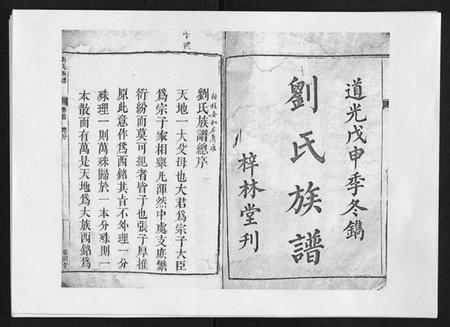 道光戊申季冬鐫
劉氏族譜
梓林堂刊
劉氏族譜總序
天地一大父母也大君為宗子大臣
為宗子家相舉凡渾然中處支庶繁
衍紛而莫可紀者皆子也張子厚推
原此意作為西銘其旨不外理一分
殊理一則萬殊歸於一本分殊則一
本散而有萬是天地為大族西銘為